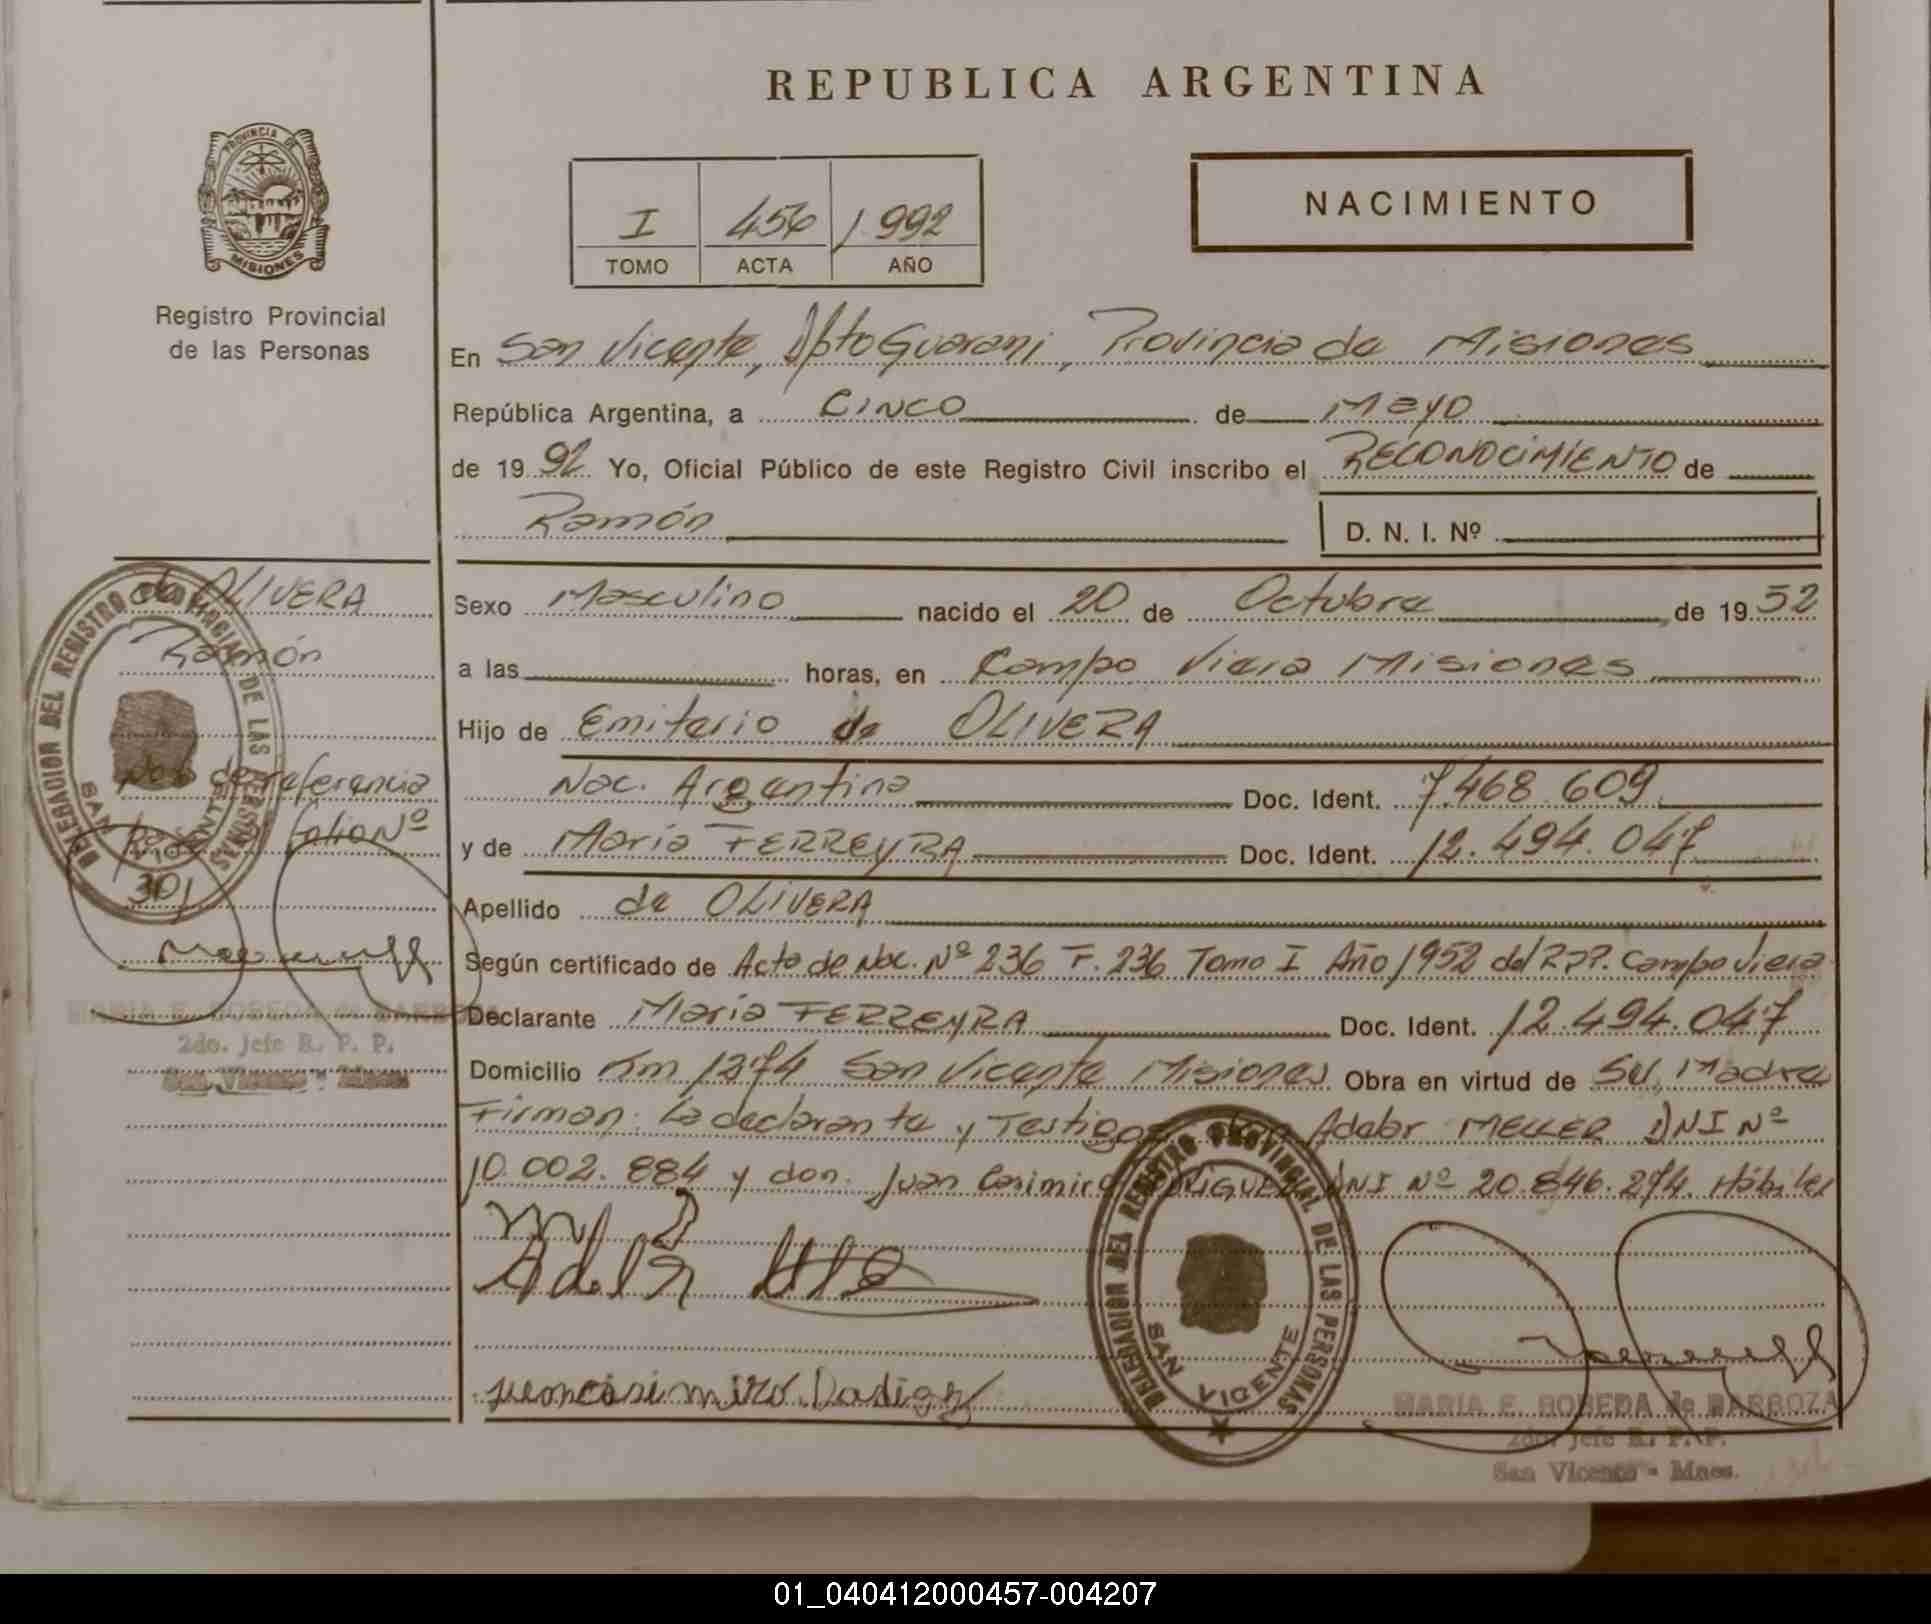 REPUBLICA ARGENTINA
PROVINCIA DE MISIONES
Registro Provincial
de las Personas
I 456 1992
TOMO ACTA AÑO
NACIMIENTO
En San Vicente, Dpto Guarani, Provincia de Misiones
República Argentina, a CINCO de Mayo
de 1992 Yo, Oficial Público de este Registro Civil inscribo el RECONOCIMIENTO de
Ramón D. N. I. Nº
de OLIVERA
Ramón
Nota de referencia
folio Nº
301
DELEGACION DEL REGISTRO PROVINCIAL DE LAS PERSONAS
SAN VICENTE
MARIA E. BOBEDA de BARBOZA
2do. Jefe R. P. P.
San Vicente - Mnes.
Sexo Masculino nacido el 20 de Octubre de 1952
a las horas, en Campo Viera Misiones
Hijo de Emiterio de OLIVERA
Nac. Argentina Doc. Ident. 7.468.609
y de María FERREYRA Doc. Ident. 12.494.047
Apellido de OLIVERA
Según certificado de Acta de Nac. Nº 236 F. 236 Tomo I Año 1952 del R.P.P. Campo Viera
Declarante María FERREYRA Doc. Ident. 12.494.047
Domicilio Km 1274 San Vicente Misiones Obra en virtud de su Madre
Firman: La declarante y Testigos Adebr MELLER DNI Nº
10.002.884 y don: Juan Casimiro RODRIGUEZ DNI Nº 20.846.274. Hábiles
DELEGACION DEL REGISTRO PROVINCIAL DE LAS PERSONAS
SAN VICENTE
MARIA E. BOBEDA de BARBOZA
2do. Jefe R. P. P.
San Vicente - Mnes.
01_040412000457-004207